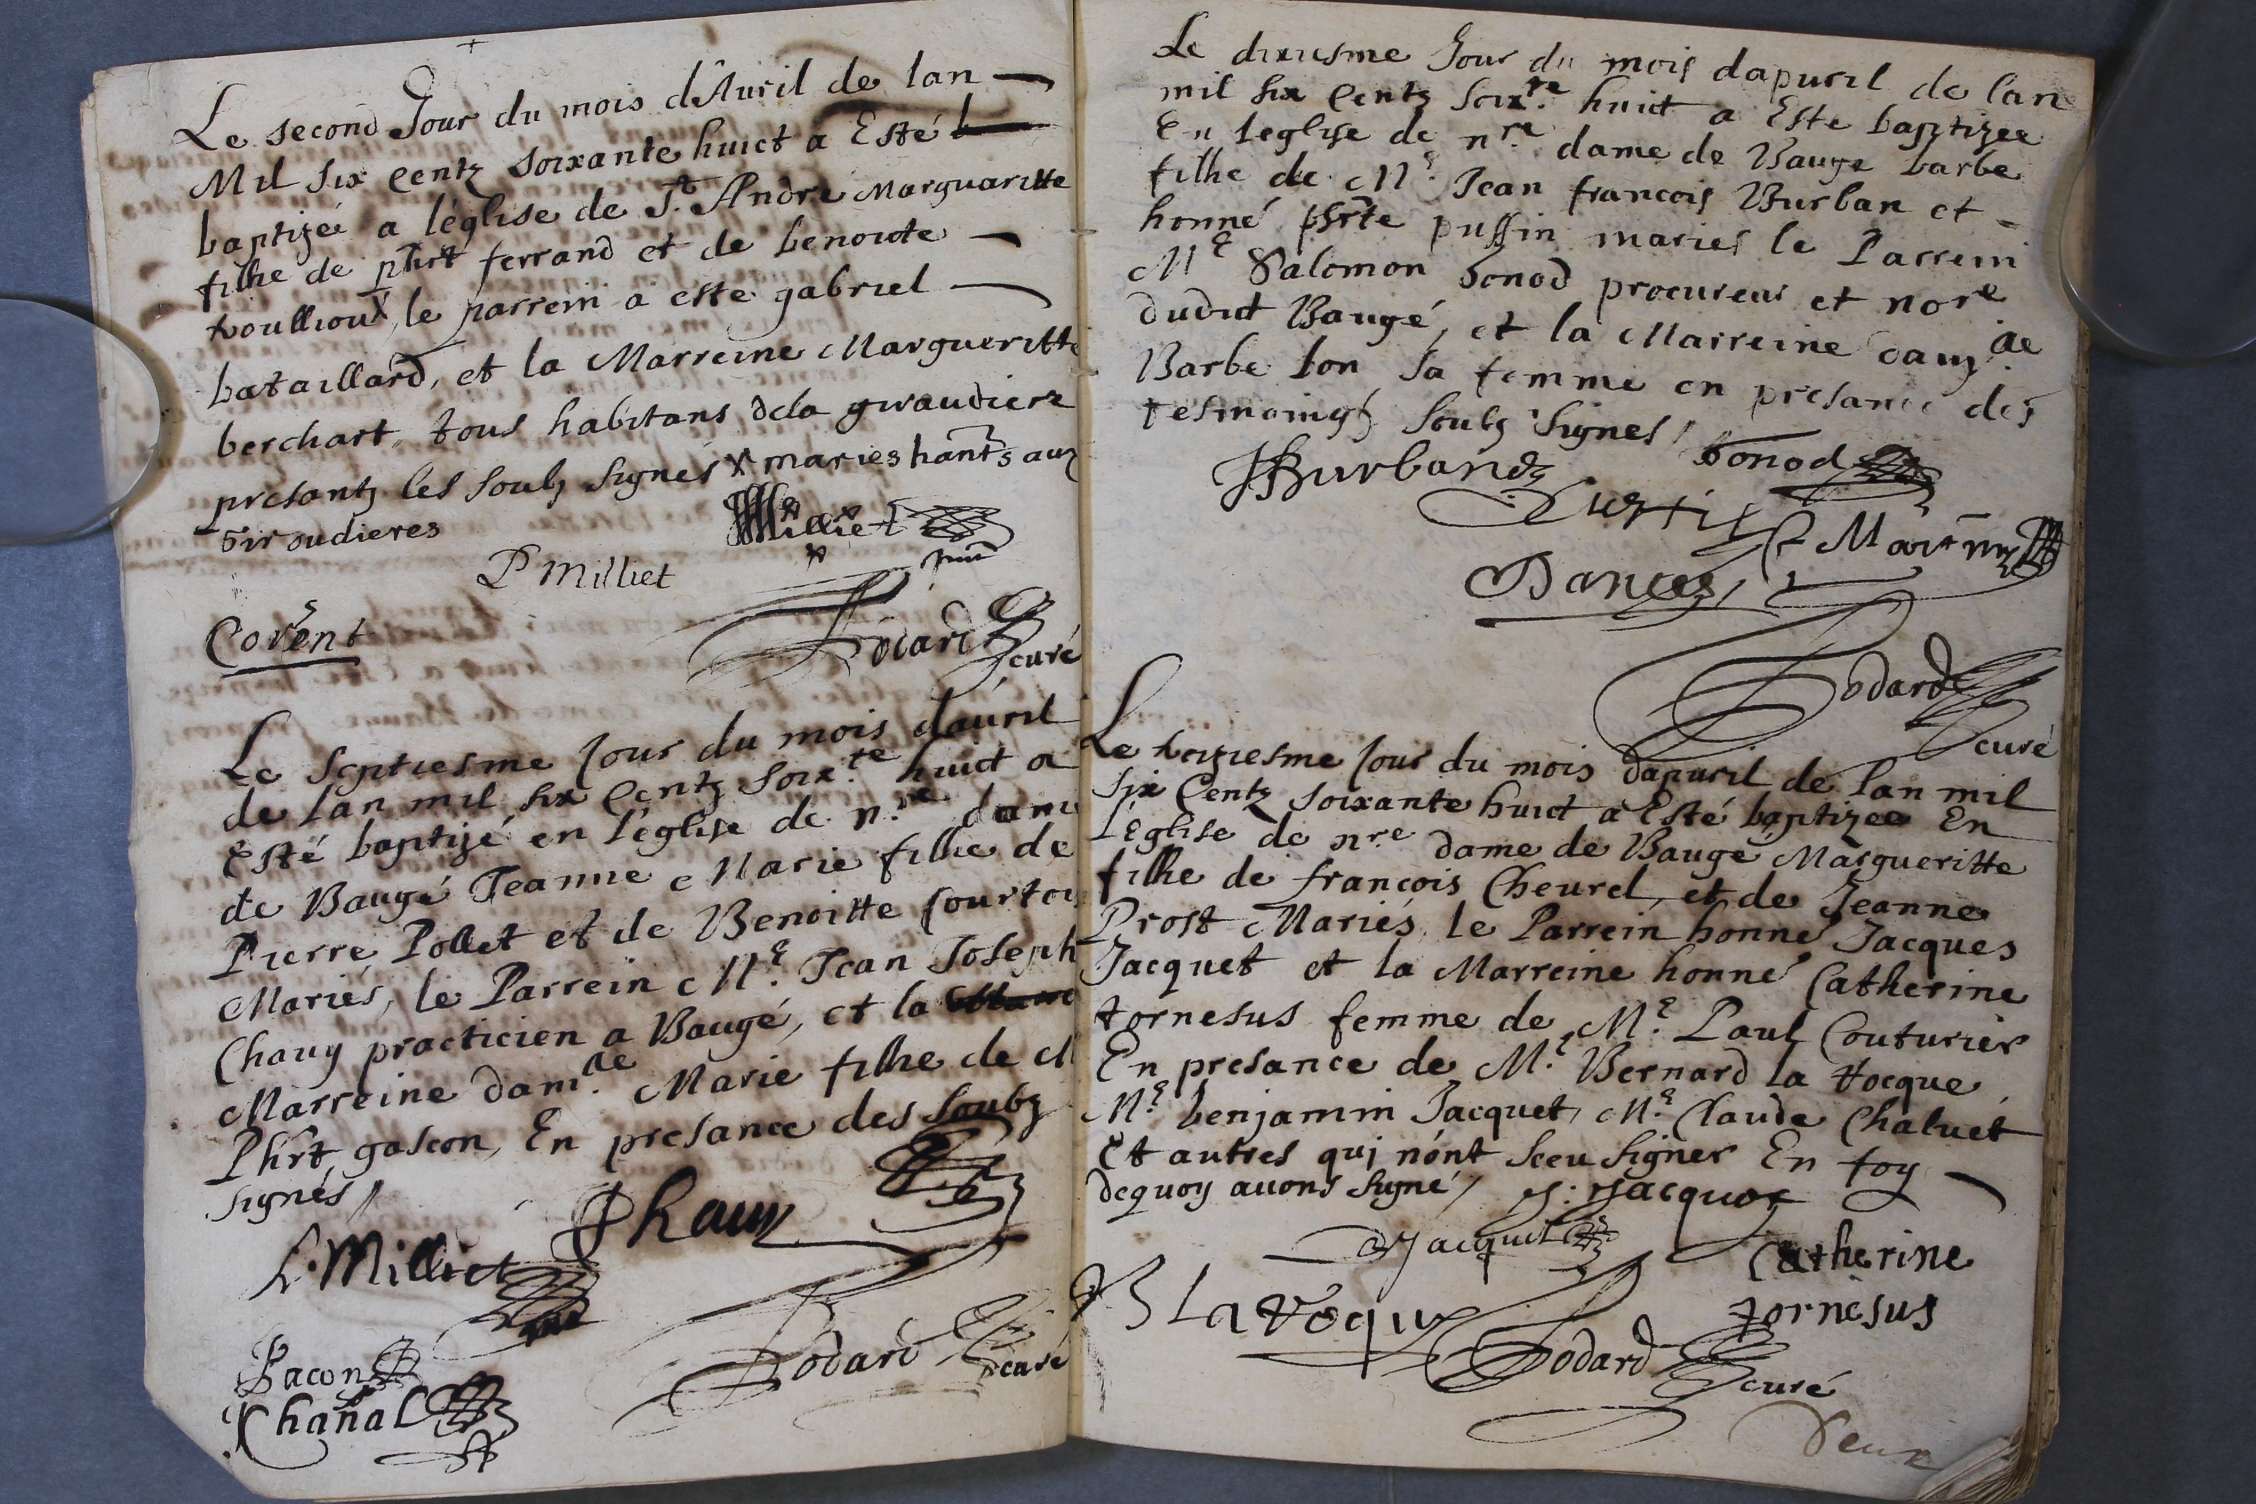 Le second Jour du mois d'Auril de lan
Mil six Centz soixante huict a Esté b
baptizée a léglise de St. André Marguaritte
filhe de phrt ferrand et de benoiste
toullioux, le parrein a esté gabriel
bataillard, et la Marreine Margueritte
berchart, tous habitans dela giraudiere
presantz les soubz signés X maries hants aux
Giroudieres
Milliet
P Milliet
Corent
Bodard
curé
Le septiesme Jour du mois dauril
de lan mil six Centz soixte huict a
Esté baptizé en l'église de nre dame
de Baugé Jeanne Marie filhe de
Pierre Pollet et de Benoitte Courtois
Mariés, le Parrein Me Jean Joseph
Chauy practicien a Baugé, et la
Marreine damlle Marie filhe de M
Phrt gascon, En presance des soubz
signés
Chauy
L. Milliet
Bodard
curé
Bacon
Chanal
Le dixiesme Jour du mois dapuril de lan
mil six Centz soixte huict a Este baptizee
En leglise de nre dame de Bauge barbe
filhe de Me Jean francois Burban et
honné phrte pussin maries le Parrein
Me Salomon bonod procureur et nore
dudit Baugé, et la Marreine damlle
Barbe bon sa femme en presance des
tesmoings soubz signés
JBurband
bonod
Martin
Dances
Bodard
curé
Le treziesme Jour du mois dapuril de lan mil
six Centz soixante huict a Esté baptizee En
l'Eglise de nre dame de Baugé Margueritte
filhe de françois Cheurel, et de Jeanne
Prost Mariés, le Parrein honné Jacques
Jacquet et la Marreine honné Catherine
tornesus femme de Me Paul Couturier
En presance de Me Bernard la tocque
Me benjamin Jacquet, Me Claude Chaluet
Et autres qui n'ont sceu signer En foy
dequoy auons signé
J. Jacquet
Jacquet
Catherine
tornesus
B La toque
Bodard
curé
Deux